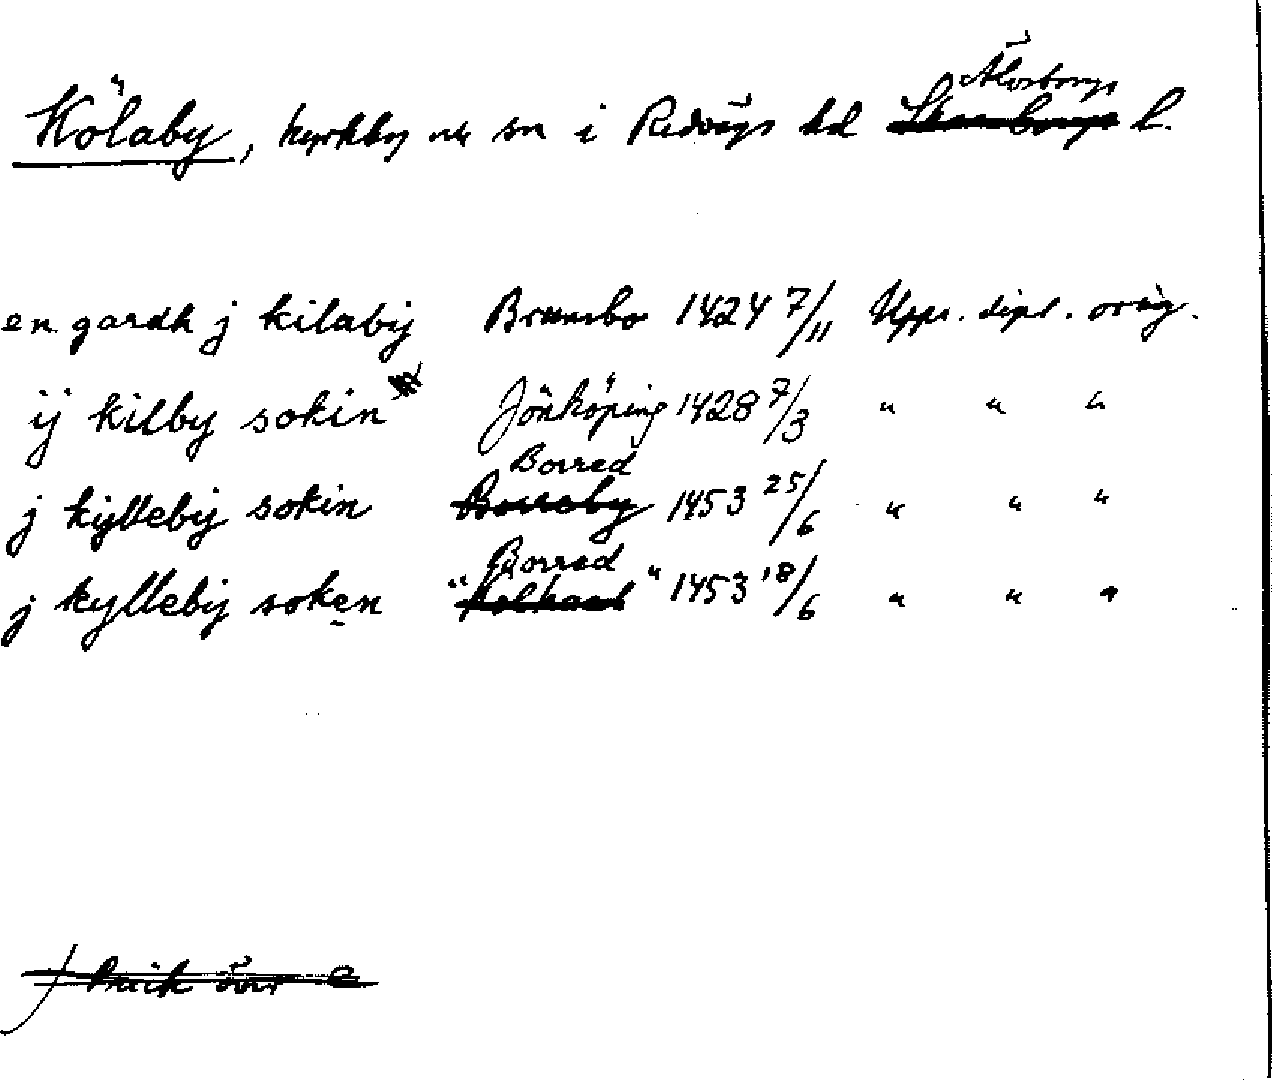 Kölaby, kyrkby och sn i Redvägs hd Älvsborgs l.
en gardh j kilabij Brunsbo 1424 7/11 Upps. dipl. orig.
ij kilby sokin Jönköping 1428 7/3 " " "
j kijllebij sokin Borred 1453 25/6 " " "
j kyllebij soken "Borred" 1453 18/6 " " "
Prick över e